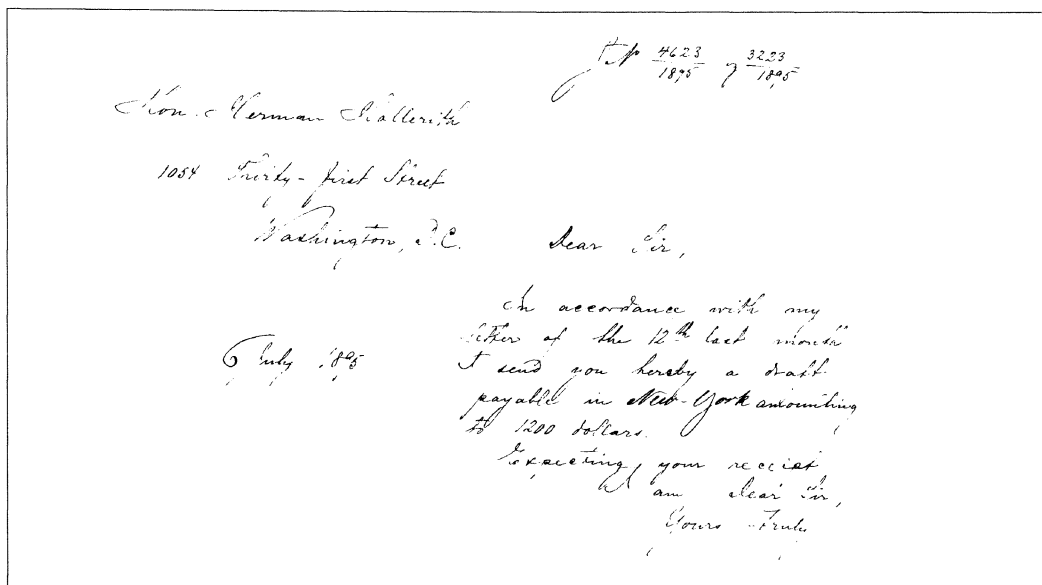 4623/1895 3223/1895
Hon. Herman Hollerith
1054 Thirty-first Street
Washington, D.C. Dear Sir,
In accordance with my
letter of the 12th last month
6 July 1895
I send you hereby a draft
payable in New-York amounting
to 1200 dollars.
Expecting, your receipt
I am Dear Sir,
Yours Truly